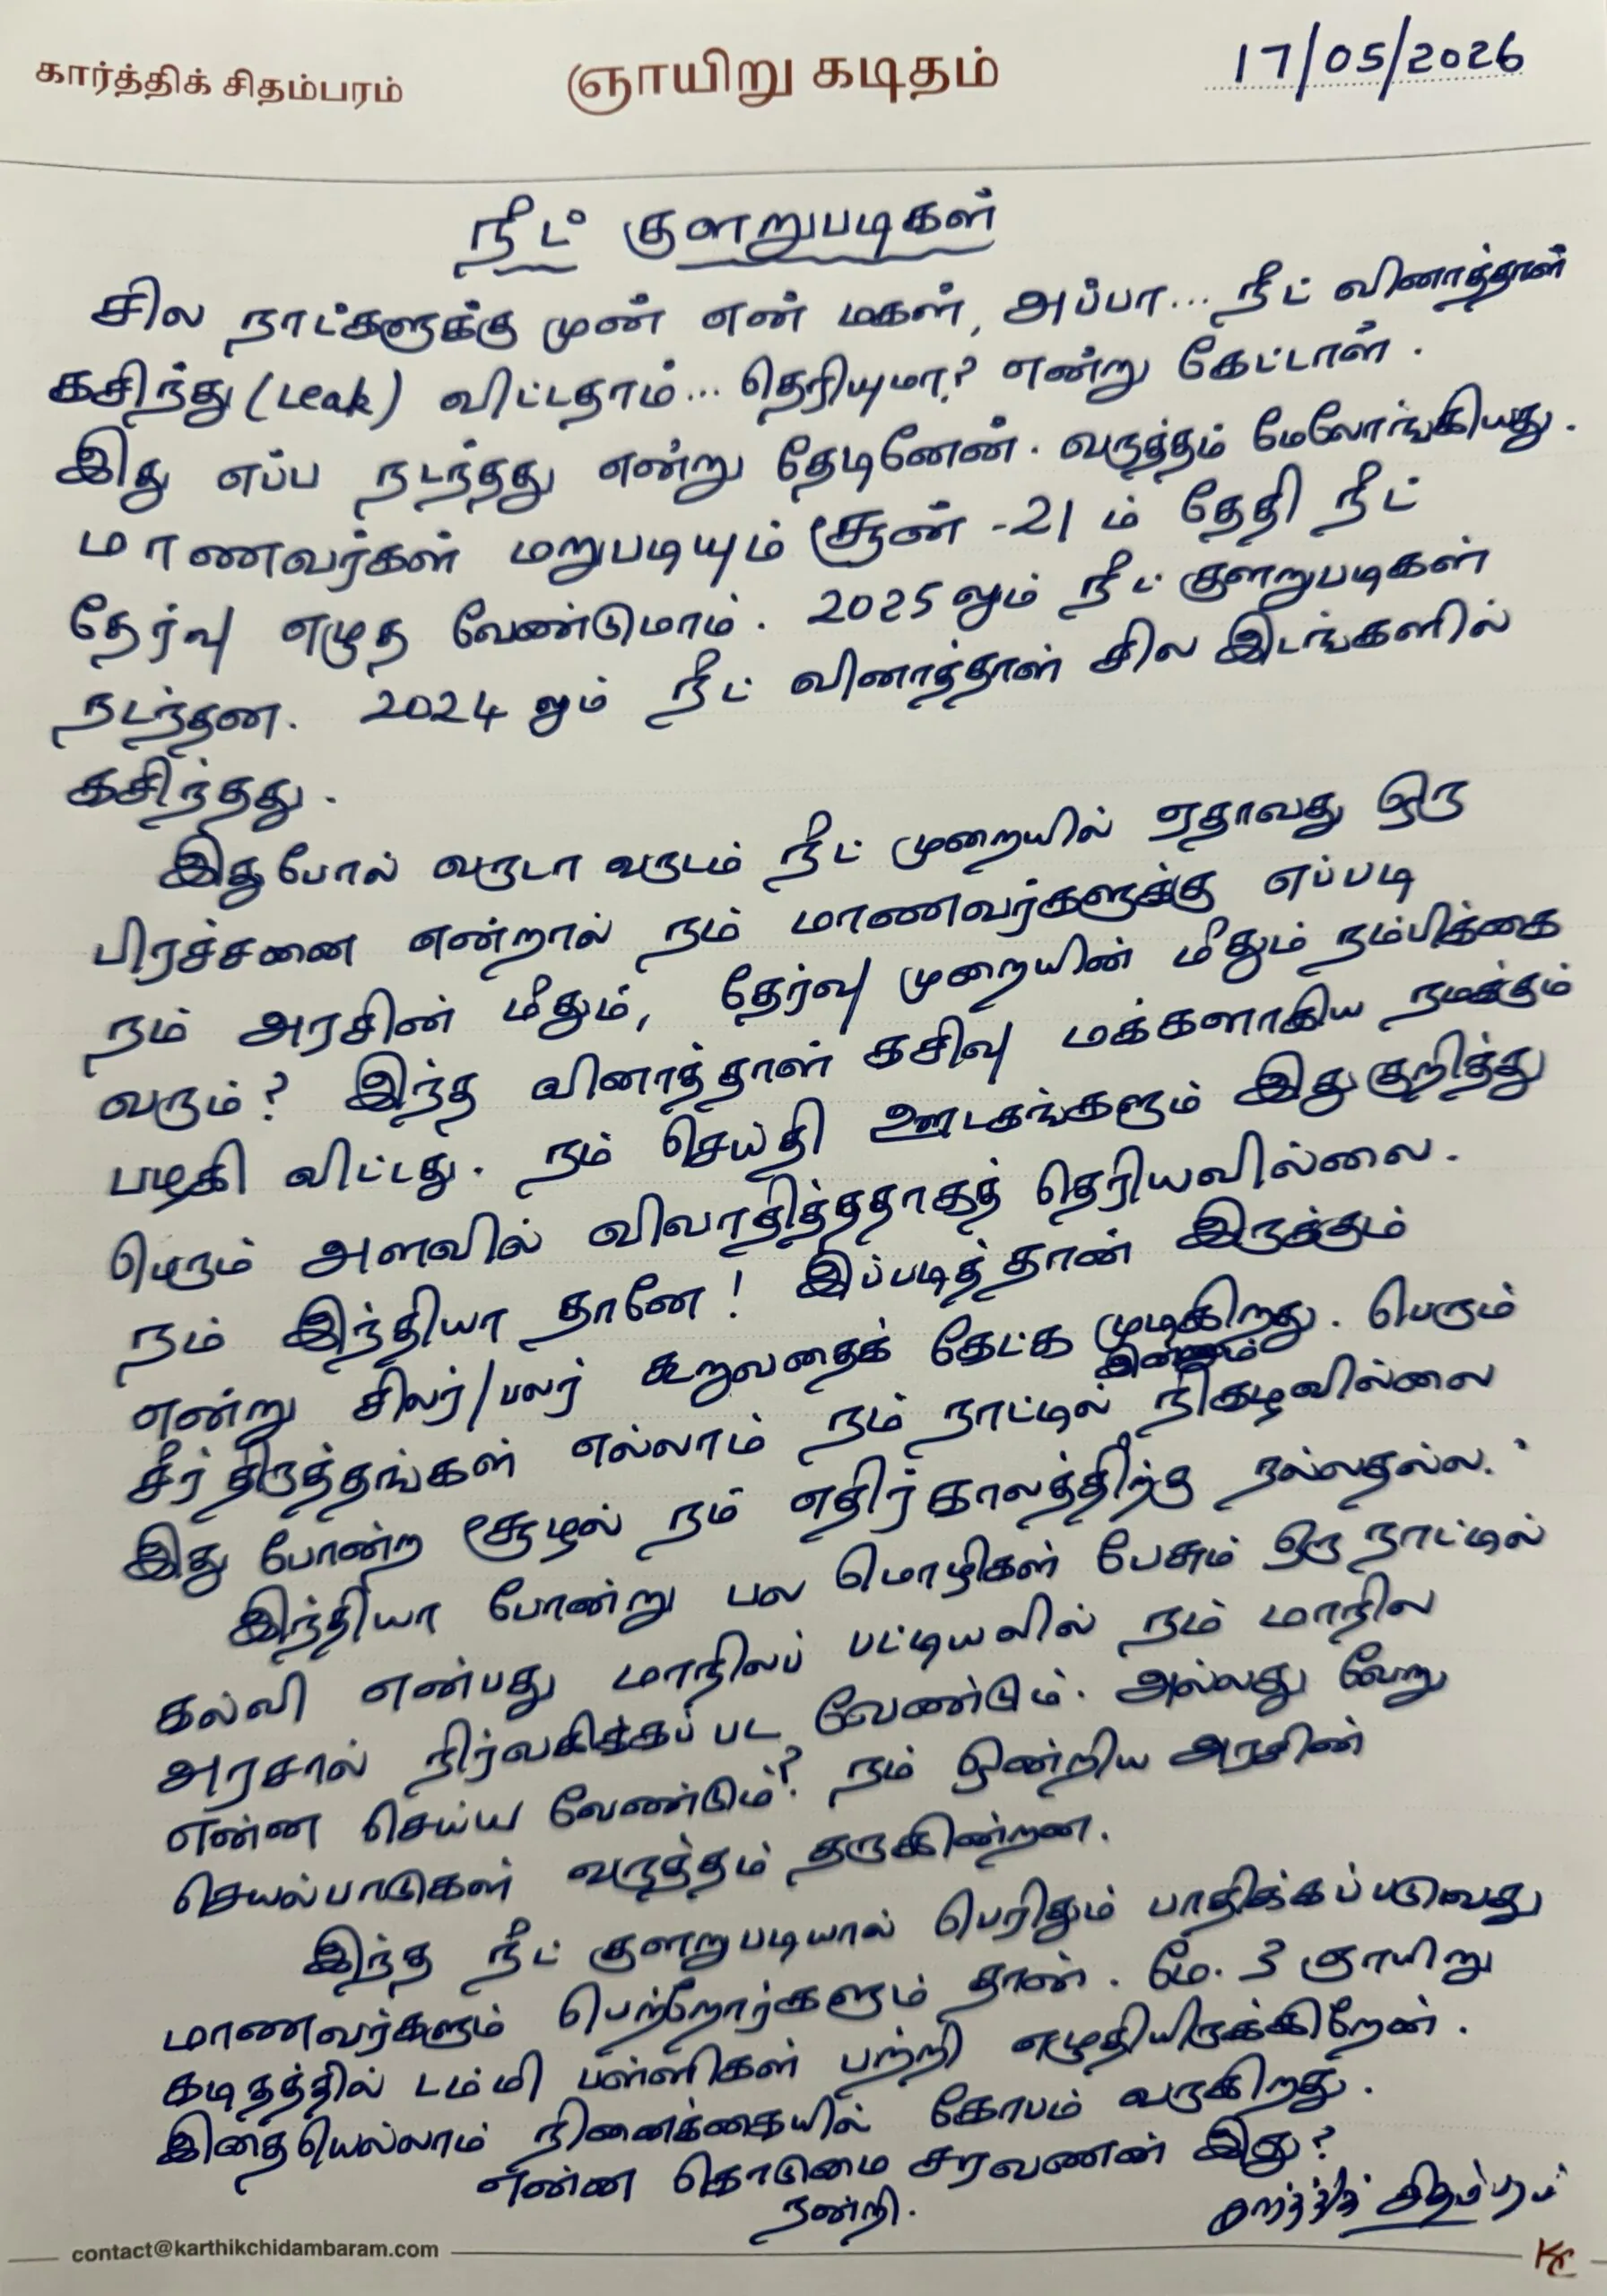 கார்த்திக் சிதம்பரம்
ஞாயிறு கடிதம்
17/05/2026
நீட் குளறுபடிகள்
சில நாட்களுக்கு முன் என் மகள், அப்பா... நீட் வினாத்தாள்
கசிந்து (Leak) விட்டதாம்... தெரியுமா? என்று கேட்டாள்.
இது எப்ப நடந்தது என்று தேடினேன். வருத்தம் மேலோங்கியது.
மாணவர்கள் மறுபடியும் ஜூன் -21 ம் தேதி நீட்
தேர்வு எழுத வேண்டுமாம். 2025 லும் நீட் குளறுபடிகள்
நடந்தன. 2024 லும் நீட் வினாத்தாள் சில இடங்களில்
கசிந்தது.
இதுபோல் வருடா வருடம் நீட் முறையில் ஏதாவது ஒரு
பிரச்சனை என்றால் நம் மாணவர்களுக்கு எப்படி
நம் அரசின் மீதும், தேர்வு முறையின் மீதும் நம்பிக்கை
வரும்? இந்த வினாத்தாள் கசிவு மக்களாகிய நமக்கும்
பழகி விட்டது. நம் செய்தி ஊடகங்களும் இதுகுறித்து
பெரும் அளவில் விவாதித்ததாகத் தெரியவில்லை.
நம் இந்தியா தானே! இப்படித்தான் இருக்கும்
என்று சிலர்/பலர் கூறுவதைக் கேட்க முடிகிறது. பெரும்
சீர்திருத்தங்கள் எல்லாம் நம் நாட்டில் இன்னும் நிகழவில்லை
இது போன்ற சூழல் நம் எதிர்காலத்திற்கு நல்லதல்ல.
இந்தியா போன்று பல மொழிகள் பேசும் ஒரு நாட்டில்
கல்வி என்பது மாநிலப் பட்டியலில் நம் மாநில
அரசால் நிர்வகிக்கப்பட வேண்டும். அல்லது வேறு
என்ன செய்ய வேண்டும்? நம் ஒன்றிய அரசின்
செயல்பாடுகள் வருத்தம் தருகின்றன.
இந்த நீட் குளறுபடியால் பெரிதும் பாதிக்கப்படுவது
மாணவர்களும் பெற்றோர்களும் தான். மே. 3 ஞாயிறு
கடிதத்தில் டம்மி பள்ளிகள் பற்றி எழுதியிருக்கிறேன்.
இதையெல்லாம் நினைக்கையில் கோபம் வருகிறது.
என்ன கொடுமை சரவணன் இது?
நன்றி.
கார்த்திக் சிதம்பரம்
contact@karthikchidambaram.com
KC